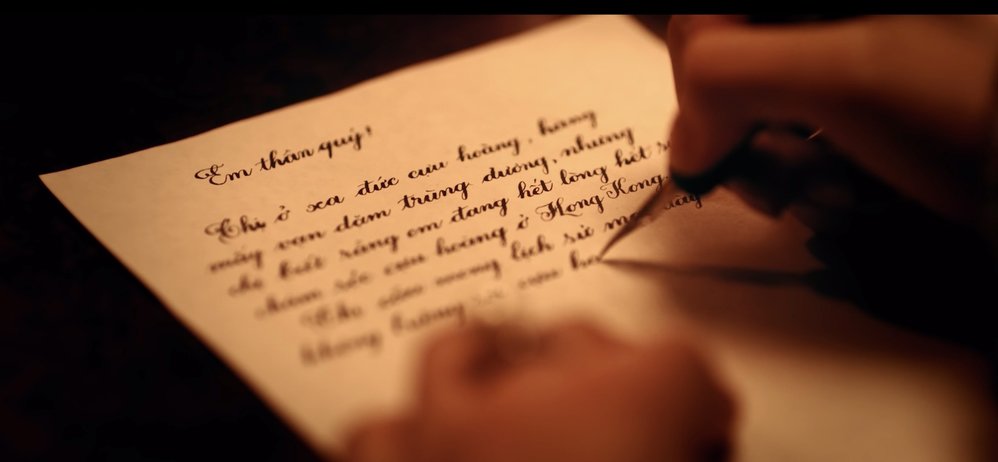 Em thân quý!
Chị ở xa đức cựu hoàng, hàng
mấy vạn dặm trùng dương, nhưng
chị biết rằng em đang hết lòng hết
chăm sóc cựu hoàng ở Hong Kong.
Chị cầu mong lịch sử
không